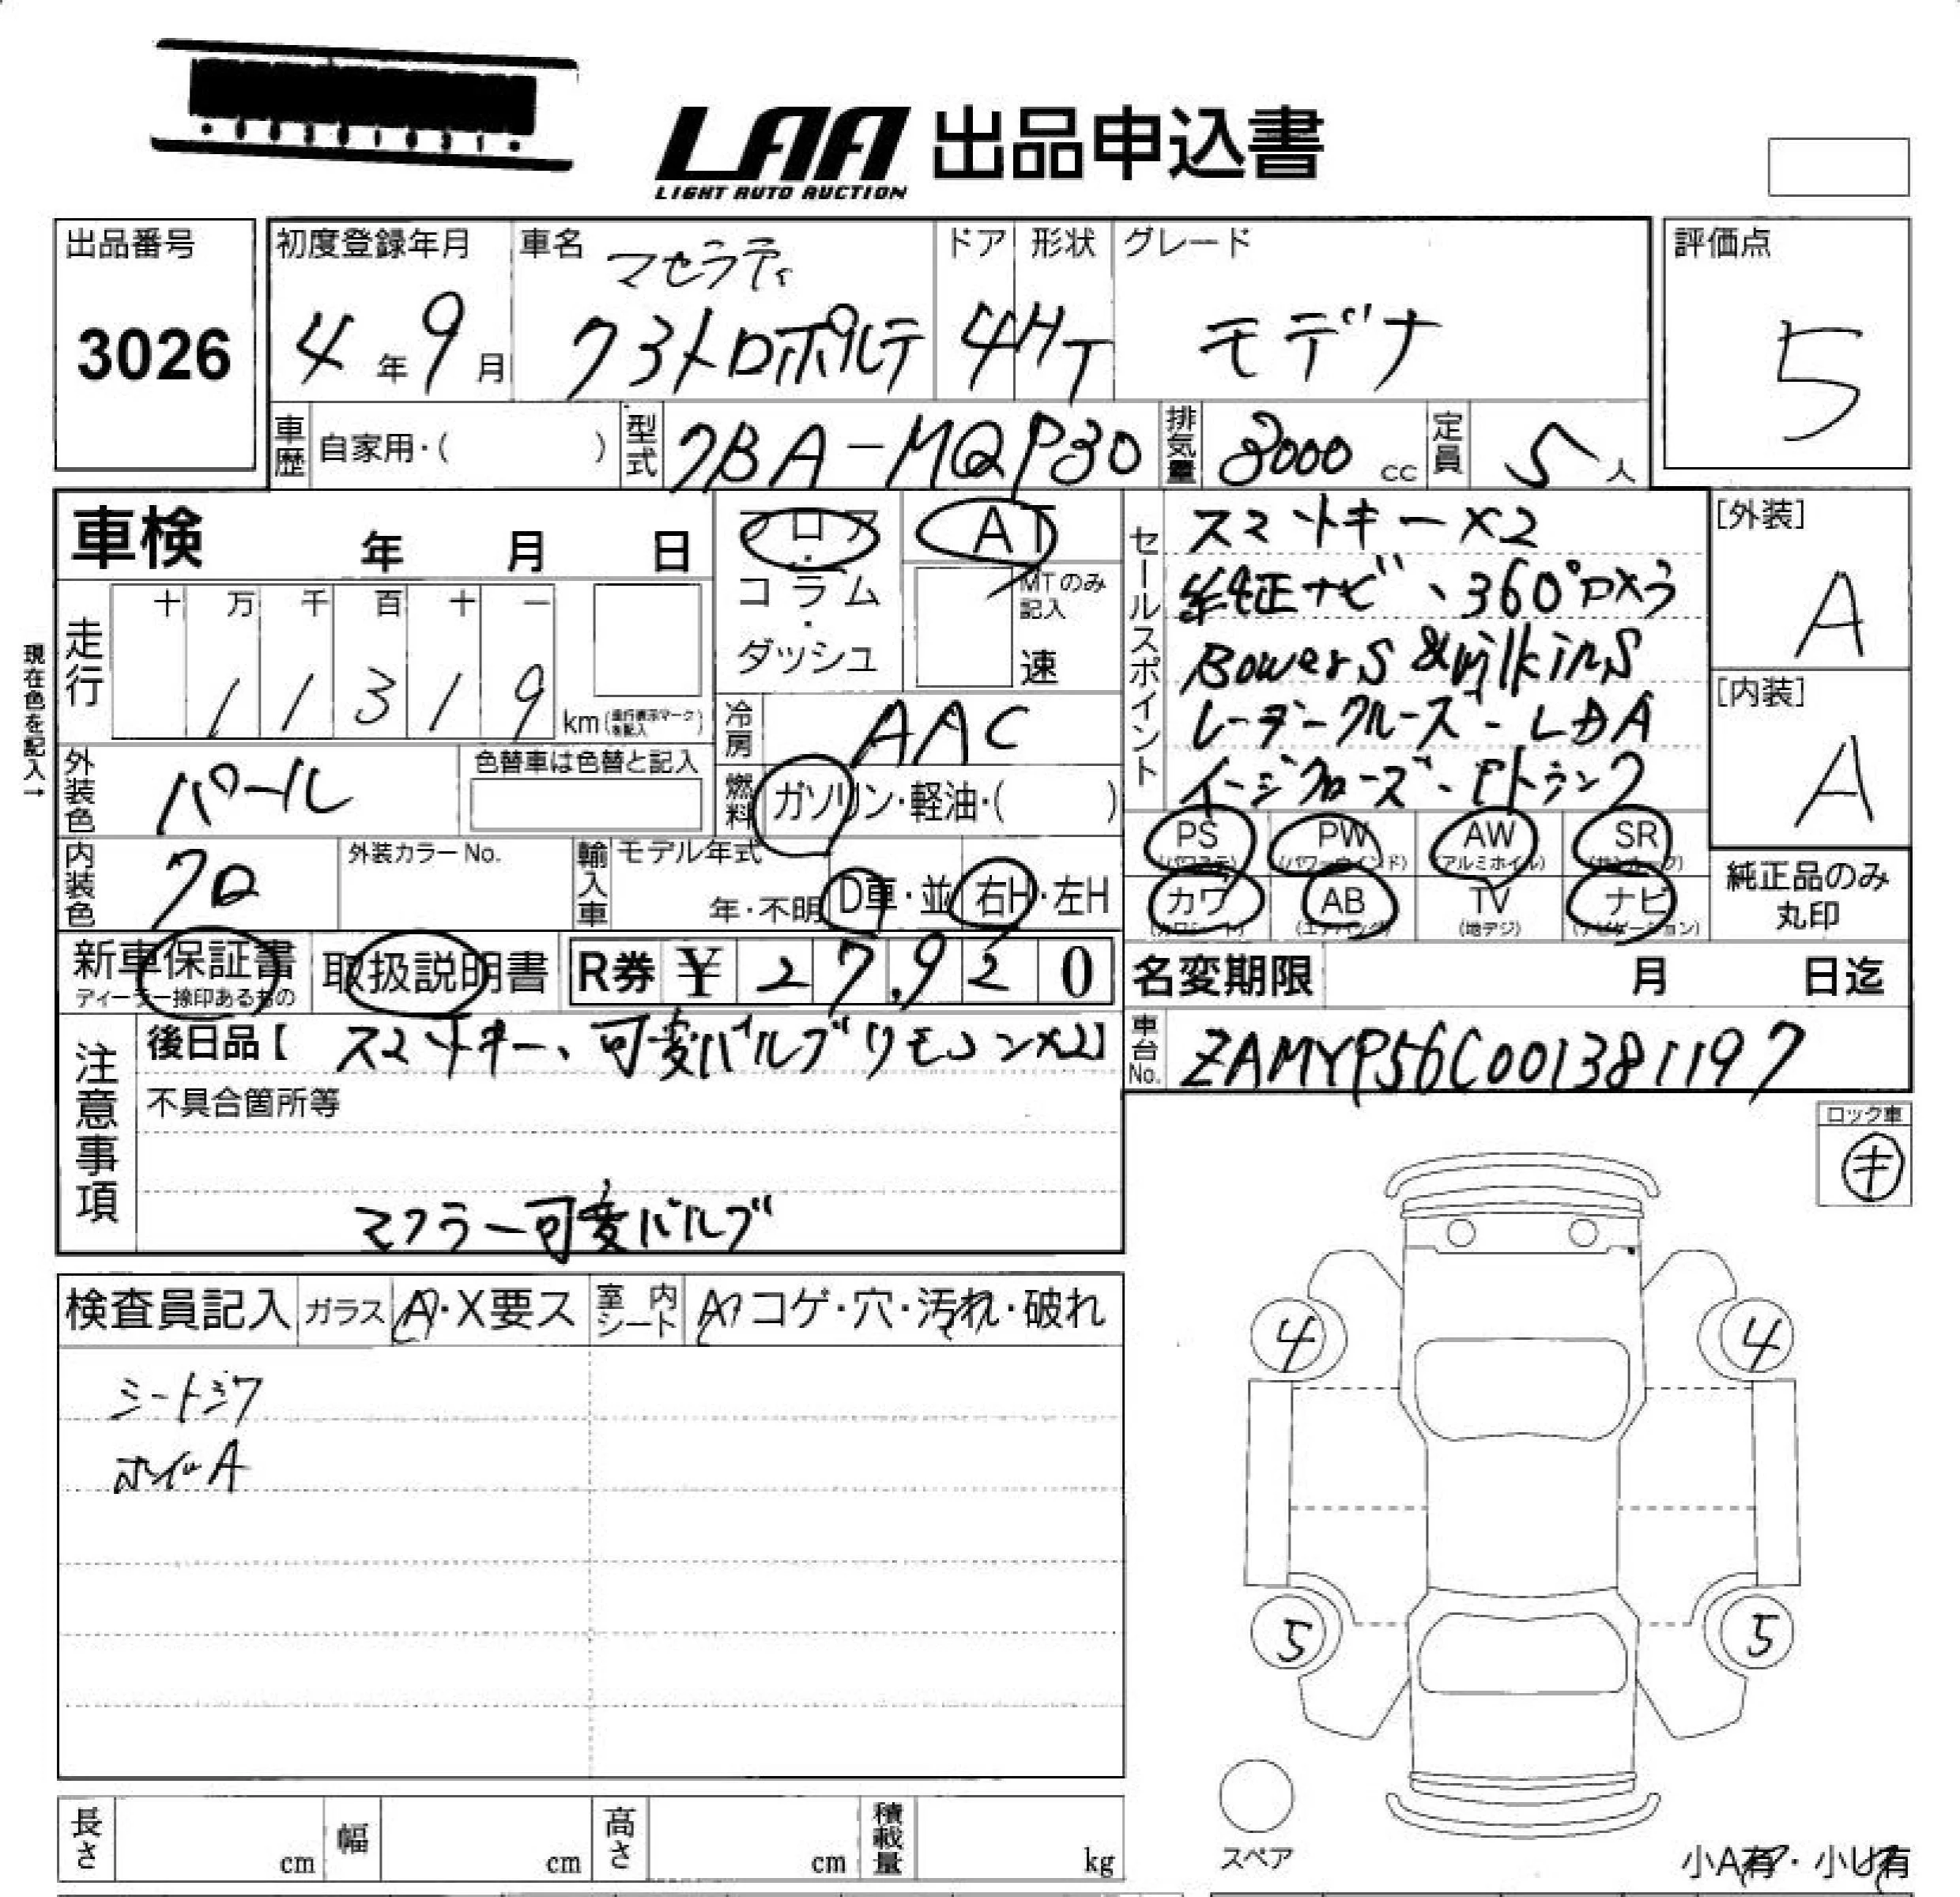 LAA 出品申込書
LIGHT AUTO AUCTION
出品番号
3026
初度登録年月
4年9月
車名 マセラティ
クアトロポルテ
ドア 4
形状 HT
グレード
モデナ
評価点
5
車歴 自家用・( )
型式 7BA-MQP30
排気量 3000 cc
定員 5 人
車検 年 月 日
フロア・コラム・ダッシュ
AT
MTのみ記入
速
セールスポイント
スマートキー×2
純正ナビ、360°カメラ
Bowers & wilkins
レーダークルーズ - LDA
イージークローズ - Eトランク
[外装]
A
[内装]
A
現在色を記入→
走行
十 万 千 百 十 一
1 1 3 1 9 km (走行表示マークを記入)
冷房 AAC
外装色 パール
色替車は色替と記入
燃料 ガソリン・軽油・( )
内装色 クロ
外装カラーNo.
輸入車 モデル年式
年・不明 D車・並 右H・左H
PS (パワステ) PW (パワーウインド) AW (アルミホイル) SR (サンルーフ)
カワ (カワシート) AB (エアバッグ) TV (地デジ) ナビ (ナビゲーション)
純正品のみ
丸印
新車保証書
ディーラー捺印あるもの
取扱説明書
R券 ¥ 27,920
名変期限 月 日迄
注意事項
後日品【 スマートキー、可変バルブリモコン×2】
不具合箇所等
マフラー可変バルブ
車台No. ZAMYP56C001381197
ロック車
キ
検査員記入 ガラス A・X要ス 室内シート A コゲ・穴・汚れ・破れ
シートシワ
ホイルA
4 4
5 5
スペア
長さ cm 幅 cm 高さ cm 積載量 kg
小A有・小U有